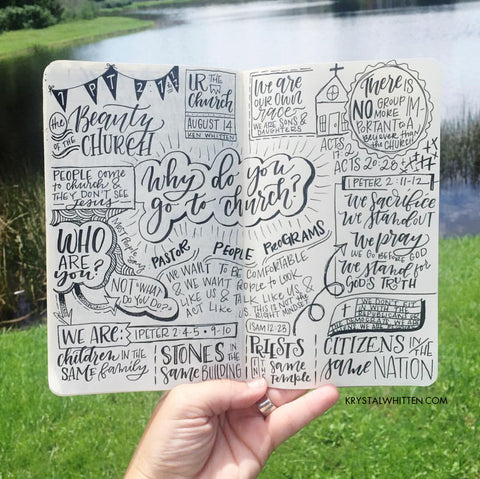 1 PT 2:11
the Beauty
OF THE CHURCH
UR THE
Church
AUGUST 14
KEN WHITTEN
PEOPLE come
to church &
THEY DON'T SEE
Jesus
WHO ARE
you?
NOT "WHAT
DO YOU DO?"
Why do you
go to church?
PASTOR, PEOPLE, PROGRAMS
WE WANT TO BE COMFORTABLE
& WE WANT PEOPLE TO LOOK
LIKE US & TALK LIKE US &
ACT LIKE US. THIS IS NOT THE
RIGHT MINDSET
We are
OUR OWN
race
WE ARE SONS &
DAUGHTERS
THERE IS
NO GROUP
MORE IM-
PORTANT TO A
BeLiever than
THE CHURCH
ACTS
17:2
ACTS 20:28
1 PETER 2:11-12
We sacrifice
We stand out
We pray
WE GO BEFORE GOD
We stand for
GOD'S TRUTH
1 SAM 12:23
WE ARE: 1 PETER 2:4-5 • 9-10
children IN THE
SAME family
STONES IN THE
same BUILDING
PRIESTS
IN THE same
Temple
CITIZENS IN THE
same NATION
KRYSTALWHITTEN.COM